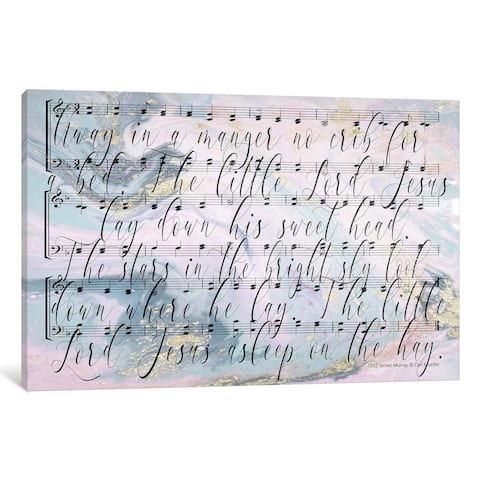 Away in a manger no crib for
a bed. The little Lord Jesus
lay down his sweet head.
The stars in the bright sky look
down where he lay. The little
Lord Jesus asleep on the hay.
1392 James Murray & Carl Mueller